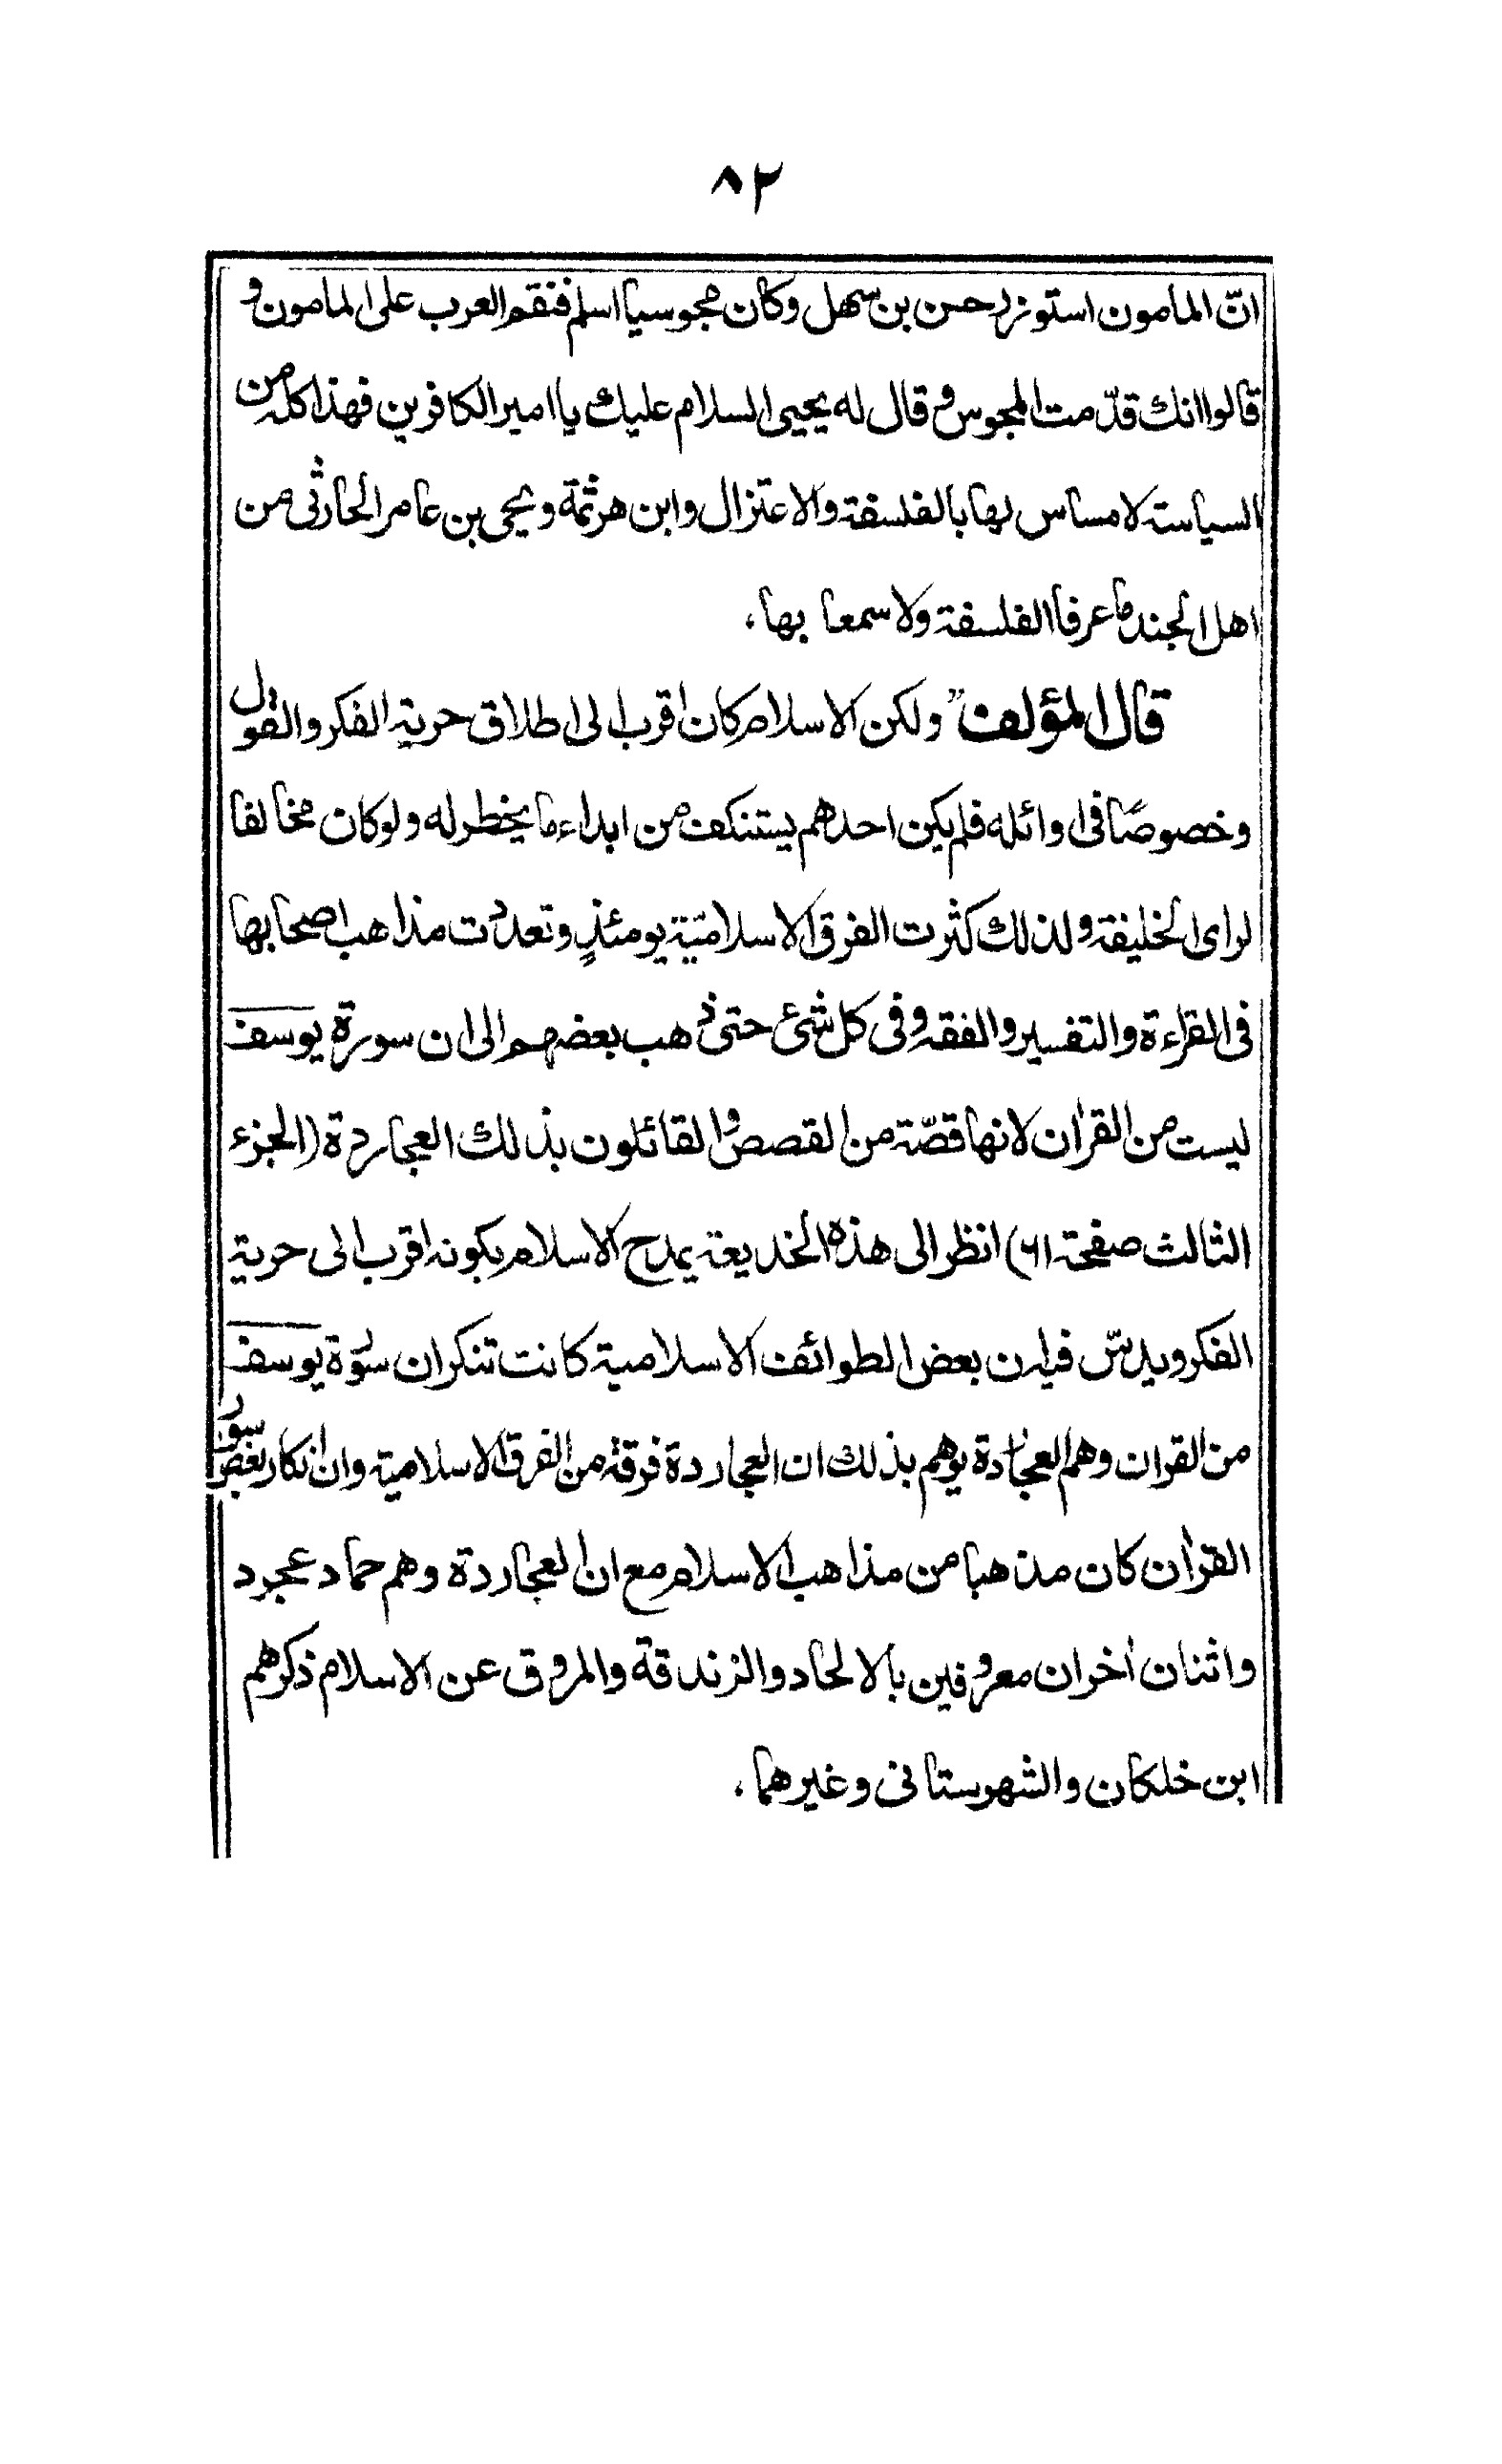 ٨٢
انّ المأمون استوزر حسن بن سهل وكان مجوسيا اسلم فنقم العرب على المامون و
قالوا انك قدّمت المجوس و قال له يحيى السلام عليك يا امير الكافرين فهذا كله من
السياسة لا مساس لها بالفلسفة والاعتزال وابن هرثمة ويحيى بن عامر الحارثى من
اهل الجند ما عرفا الفلسفة ولا سمعا بها،
قال المؤلف” ولكن الاسلام كان اقرب الى اطلاق حرية الفكر والقول
وخصوصًا فى اوائله فلم يكن احدهم يستنكف من ابداء ما يخطر له ولو كان مخالفا
لراى الخليفة ولذلك كثرت الفرق الاسلاميّة يومئذٍ وتعددت مذاهب اصحابها
فى القراءة والتفسير والفقه وفى كل شئ حتى ذهب بعضهم الى ان سورة يوسف
ليست من القران لانها قصّة من القصص والقائلون بذلك العجاردة (الجزء
الثالث صفحة ٦١) انظر الى هذه الخديعة يمدح الاسلام بكونه اقرب الى حرية
الفكر ويدسّ فيه ان بعض الطوائف الاسلامية كانت تنكر ان سورة يوسف
من القران وهم العجاردة يوهم بذلك ان العجاردة فرقة من الفرق الاسلامية وان انكار بعض سور
القران كان مذهبا من مذاهب الاسلام مع ان العجاردة وهم حماد عجرد
واثنان اخران معروفين بالالحاد والزندقة والمروق عن الاسلام ذكرهم
ابن خلكان والشهرستانى وغيرهما،